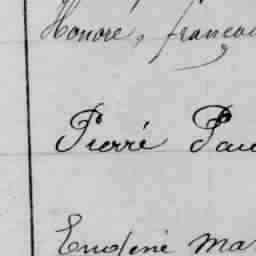 Honoré, françois
Pierré Paul
Eugéne Ma